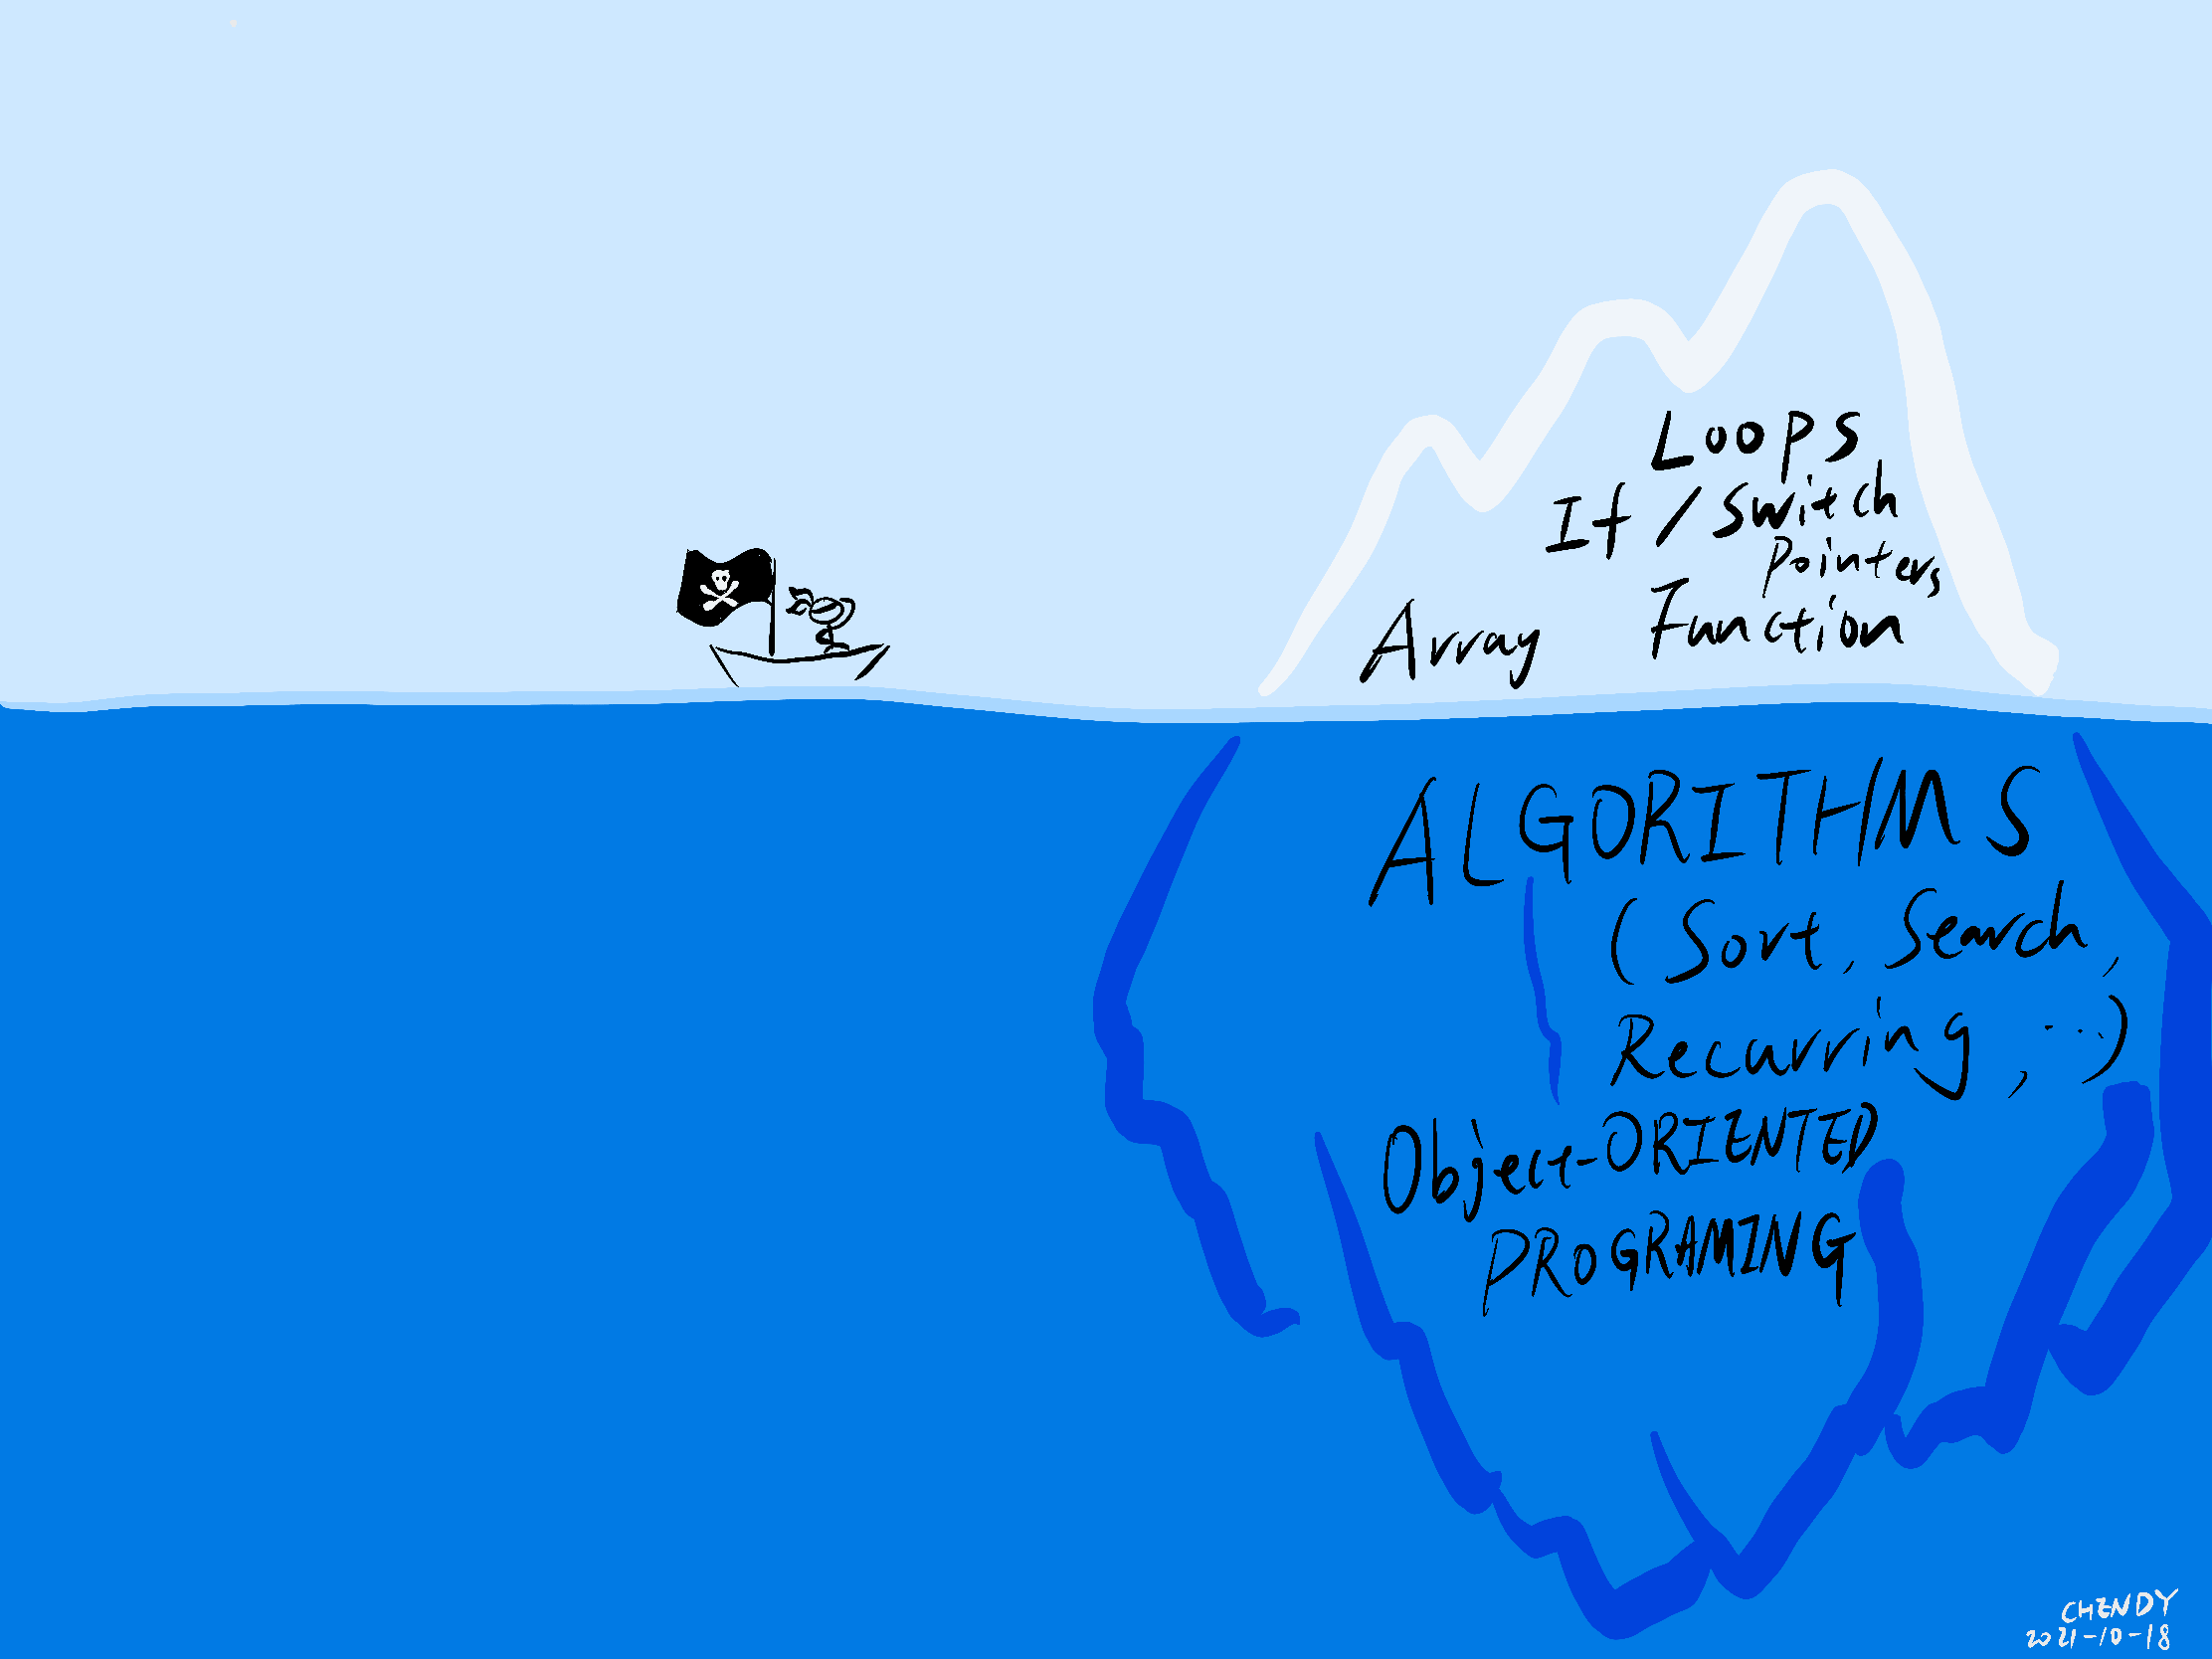 Loops
If / Switch
Pointers
Function
Array
ALGORITHMS
(Sort, Search,
Recurring, ...)
Object-ORIENTED
PROGRAMING
CHENDY
2021-10-18